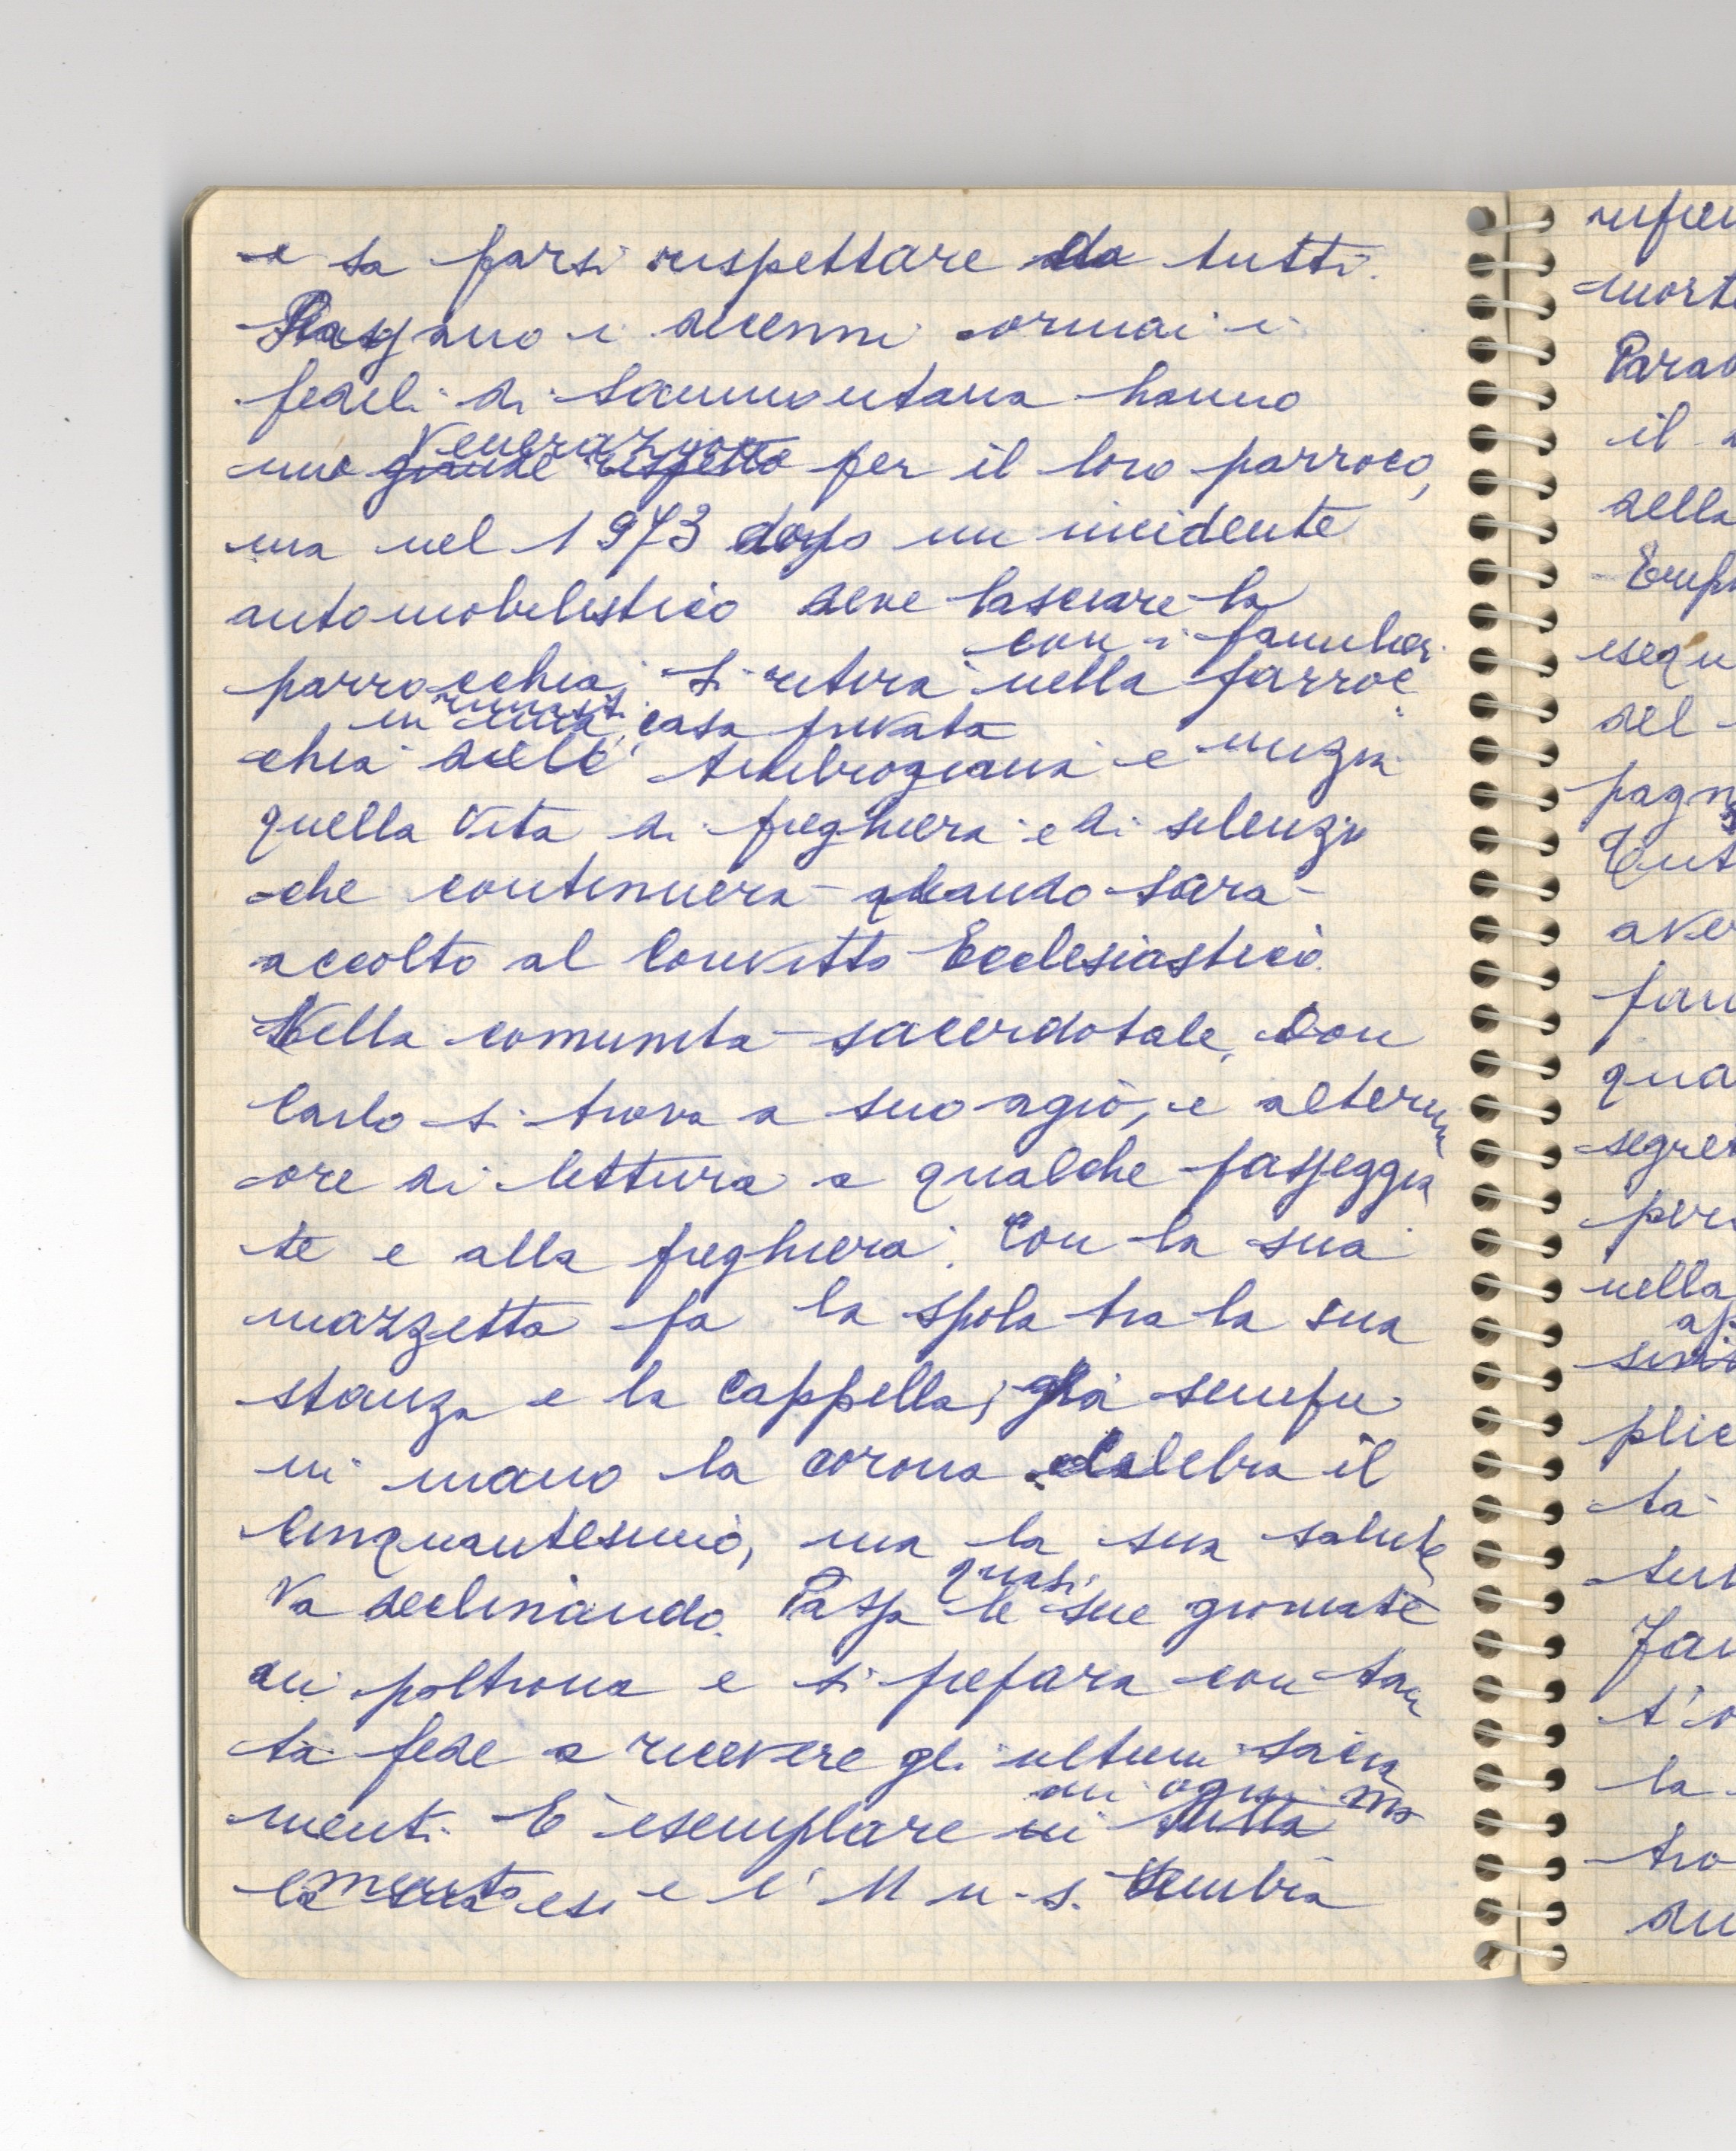 e sa farsi rispettare da tutti.
Passano i decenni ormai i
fedeli di Sammontana hanno
venerazione
una grande rispetto per il loro parroco,
ma nel 1973 dopo un incidente
automobilistico deve lasciare la
con i familiari
parrocchia, si ritira nella parroc
in casa privata
chia dell' Ambrogiana e inizia
quella vita di preghiera e di silenzio
che continuerà quando sarà
accolto al Convitto Ecclesiastico.
Nella comunità sacerdotale, Don
Carlo si trova a suo agio, e alterna
ore di lettura a qualche passeggia
te e alla preghiera. Con la sua
mazzetta fa la spola tra la sua
stanza e la cappella, sempre
in mano la corona celebra il
Cinquantesimo, ma la sua salute
quasi
va declinando. Passa le sue giornate
in poltrona e si prepara con tan
ta fede a ricevere gli ultimi sacra
in ogni mo
menti. E' esemplare in tutta
mento
la sua e l' U n. s. Umbria
rifie
mort
Parad
il
della
Emp
esequ
del
pagn
Tut
aver
fam
qua
segre
per
nella
ap
plic
tà
tut
Fan
t'o
la
tro